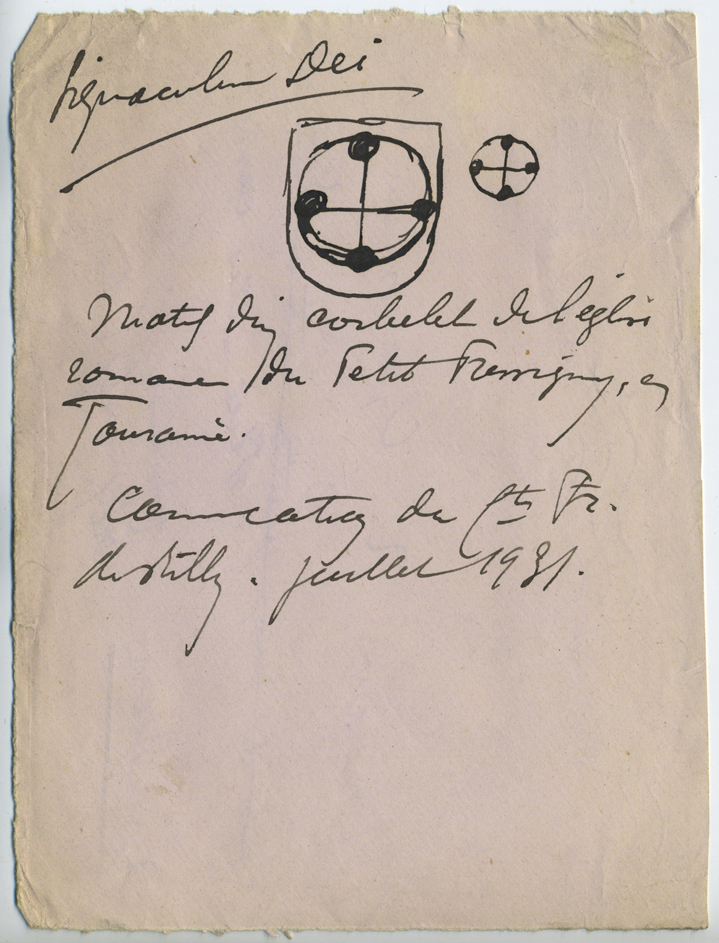 Signaculum Dei
Motif d'un corbelet de l'église
romane du Petit Pressigny, en
Touraine.
Communication du Cte Fr.
juillet 1931.